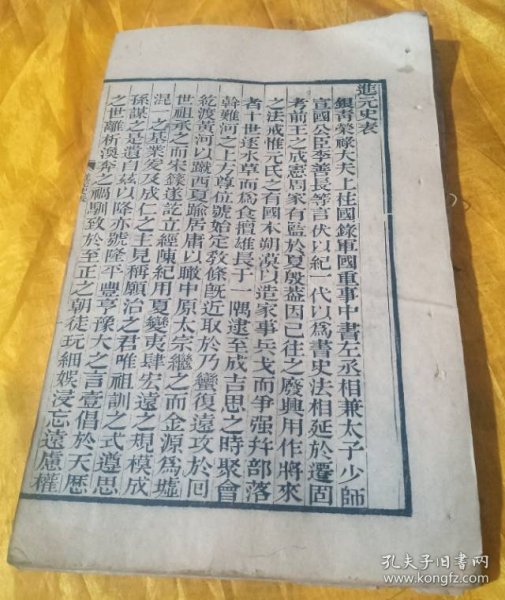 進元史表
銀青榮祿大夫上柱國錄軍國重事中書左丞相兼太子少師
宣國公臣李善長等言伏以紀一代以爲書史法相延於遷固
考前王之成憲周家有監於夏殷葢因已往之廢興用作將來
之法戒惟元氏之有國本朔漠以造家事兵戈而爭强并部落
者十世逐水草而爲食擅雄長于一隅逮至成吉思之時聚會
斡難河之上方尊位號始定敎條旣近取於乃蠻復遠攻於回
紇渡黃河以蹴西夏踰居庸以瞰中原太宗繼之而金源爲墟
世祖承之而宋籙遂訖立經陳紀用夏變夷肆宏遠之規模成
混一之基業爰及成仁之主見稱願治之君唯祖訓之式遵思
孫謀之是遺自茲以降亦號隆平豐亨豫大之言壹倡於天歷
之世離析渙奔之禍馴致於至正之朝徒玩細娛浸忘遠慮權
孔夫子旧书网
www.kongfz.com